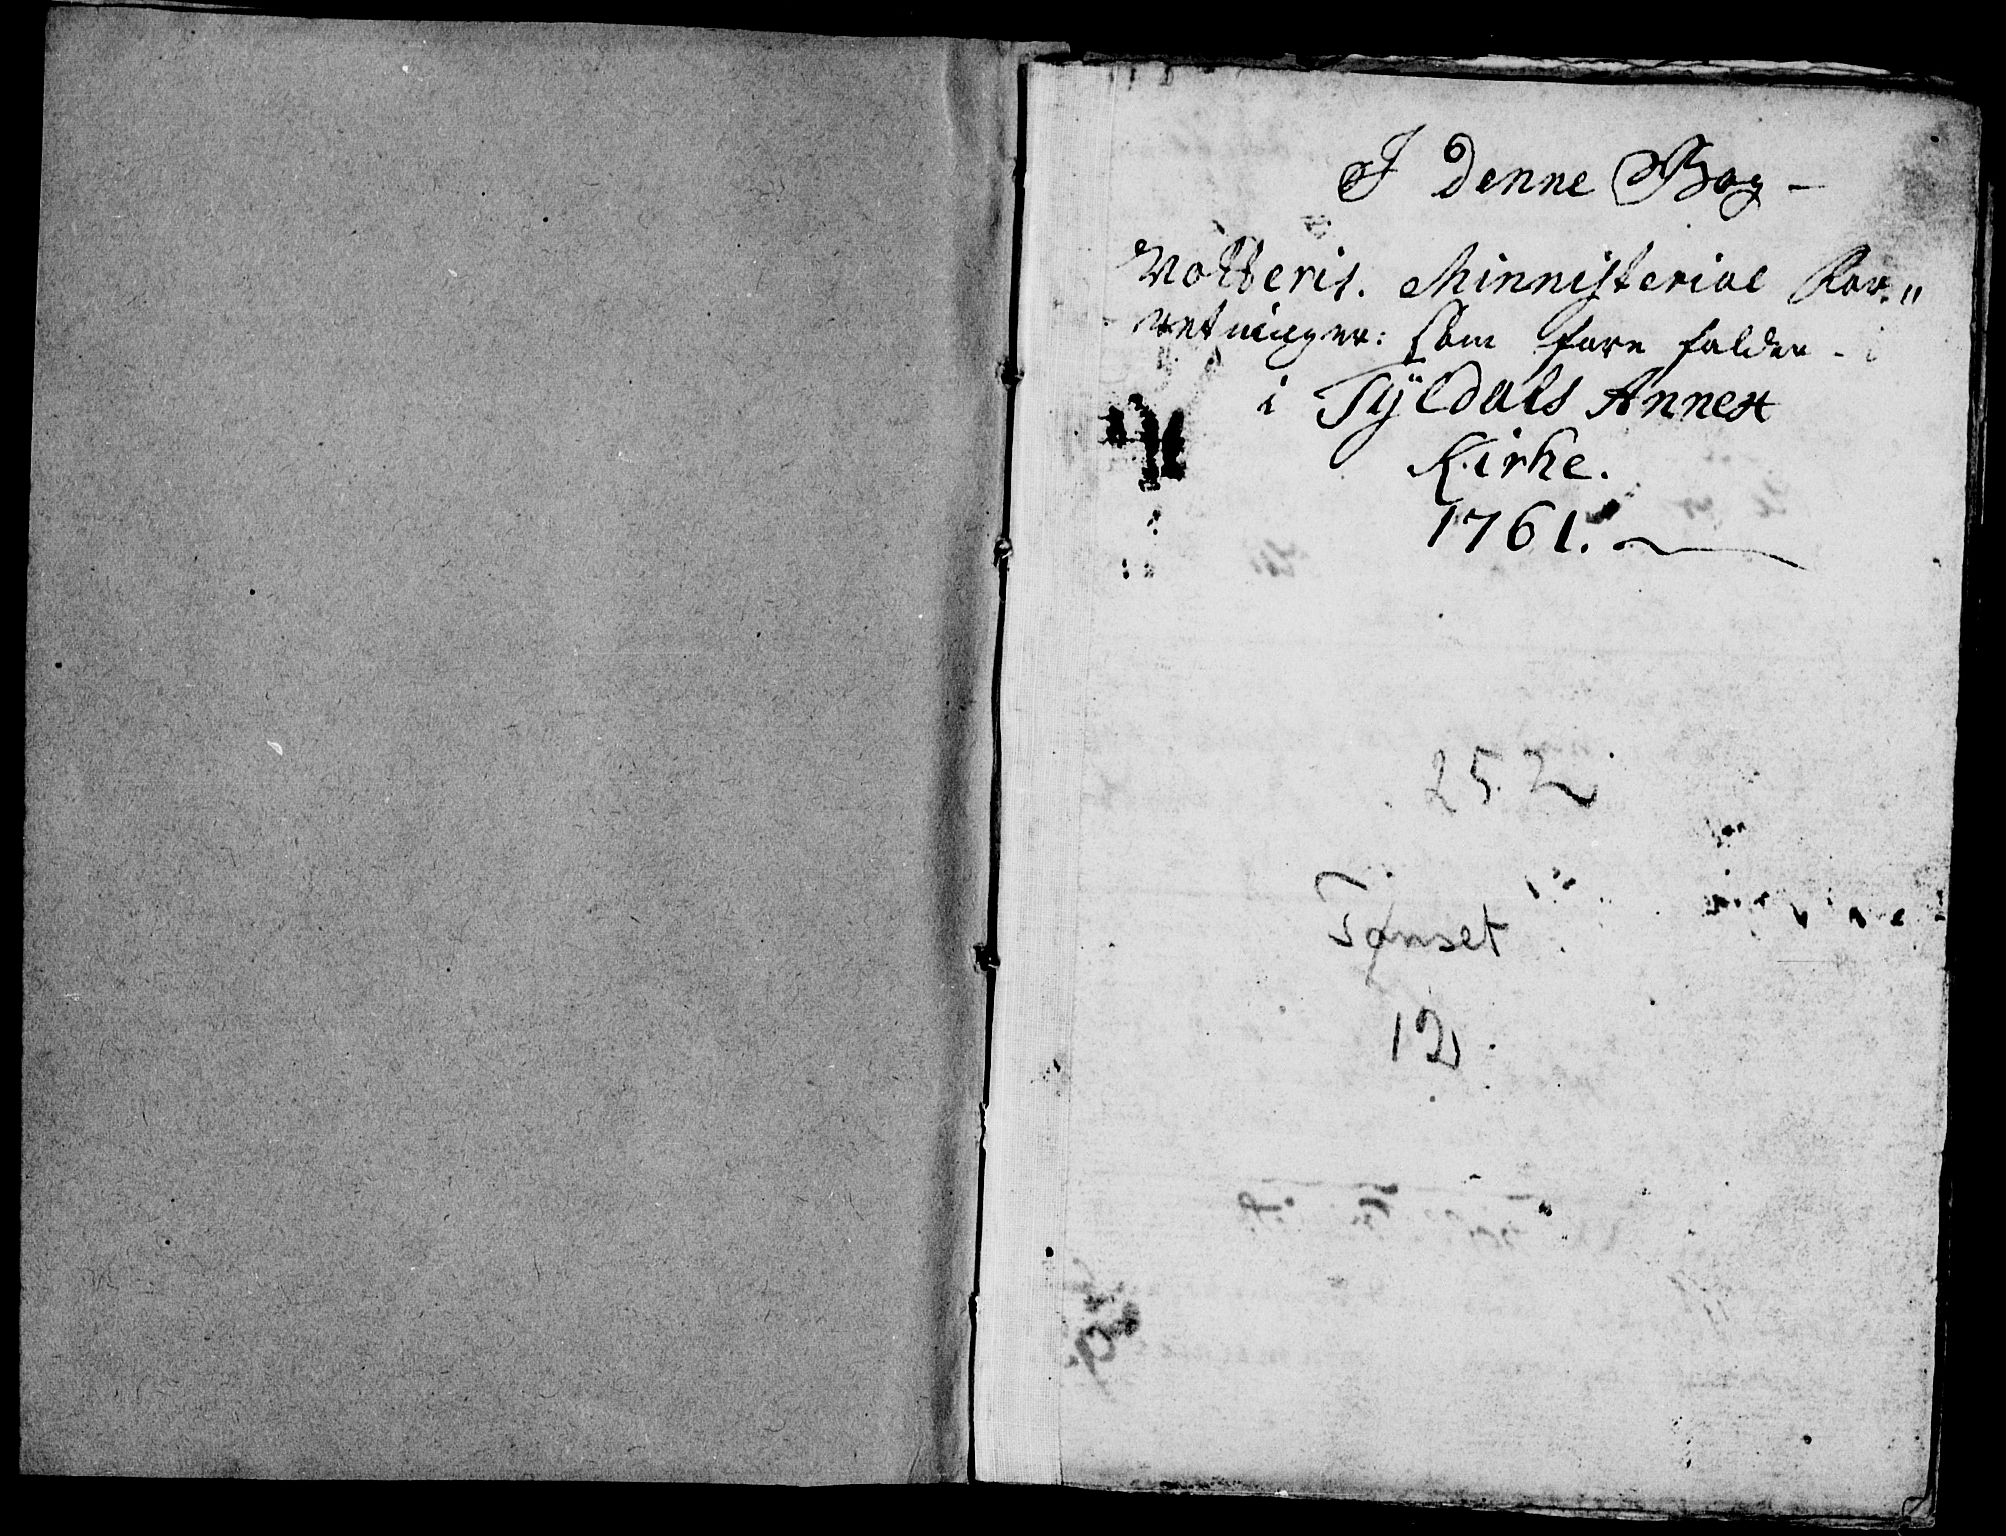 I denne Bog –
Notteris. Minnisterial For„
retninger: som fore falder – i
i Tÿldals Annex
Kirke.
1761.
252
Tønset
12